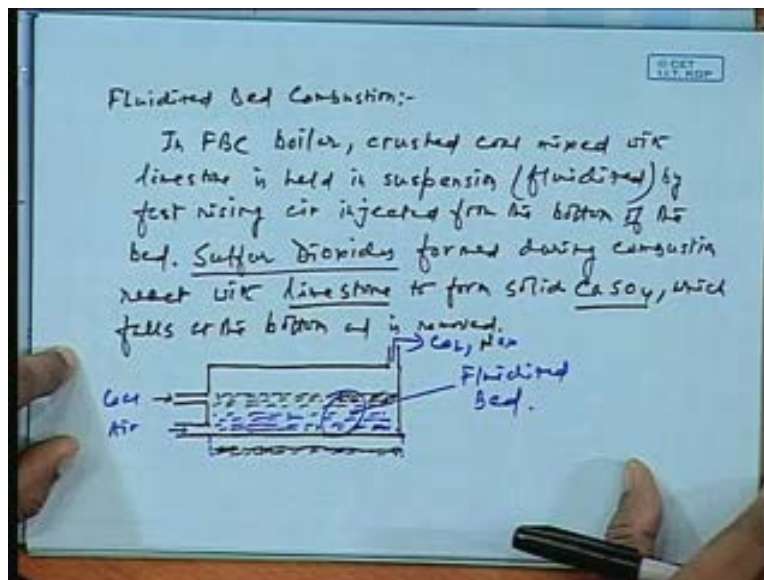 © CET
I.I.T. KGP
Fluidized Bed Combustion:-
In FBC boiler, crushed coal mixed with
limestone is held in suspension (fluidized) by
fast rising air injected from the bottom of the
bed. Sulfur Dioxides formed during combustion
react with limestone to form solid CaSO4, which
falls at the bottom and is removed.
CO2, NOx
Coal
Fluidized
Bed.
Air